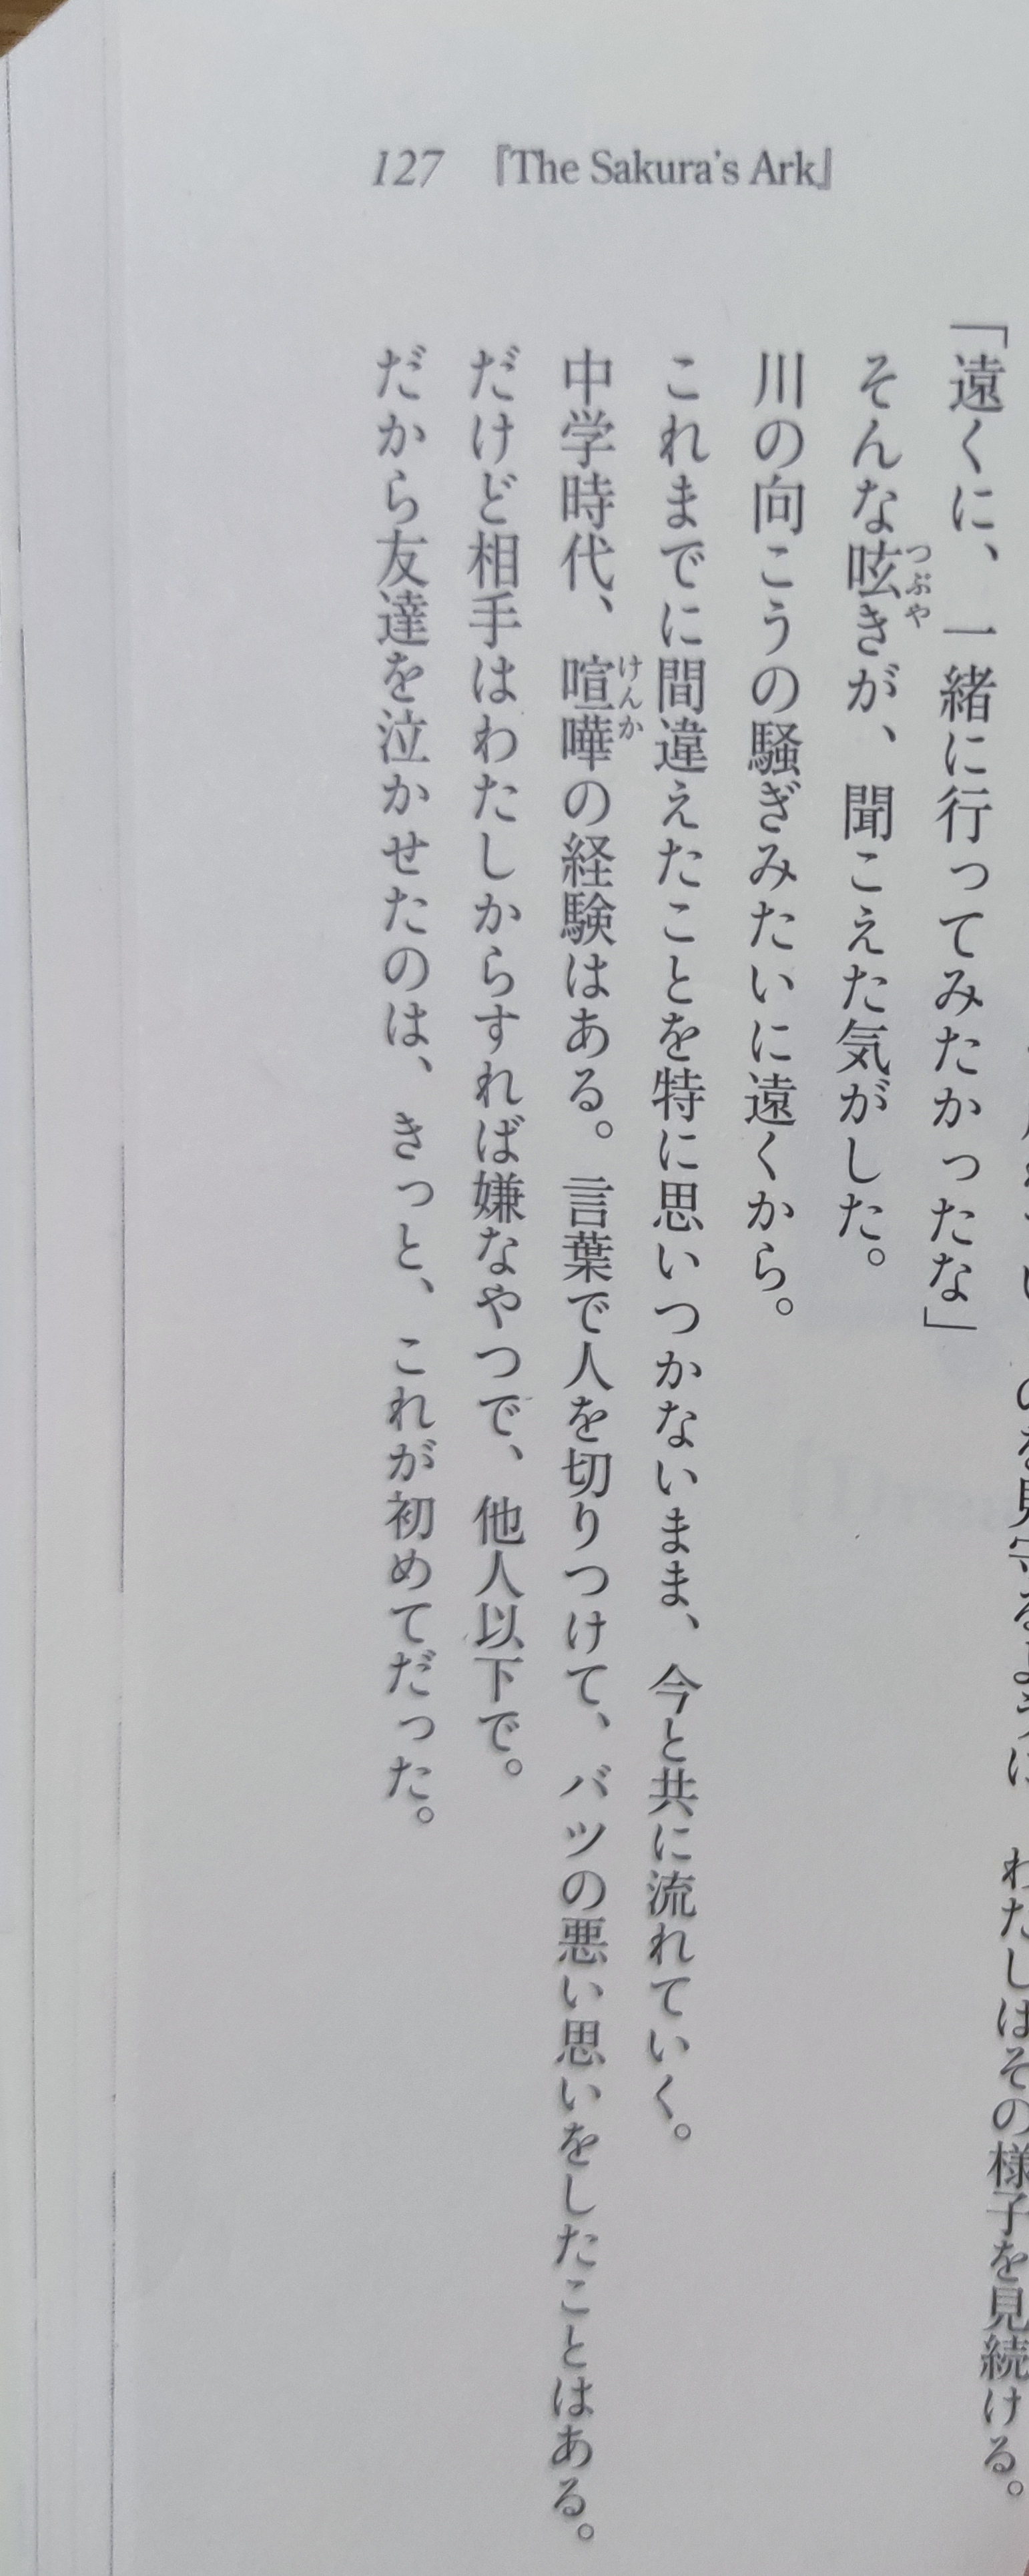 127 『The Sakura's Ark』
わたしはその様子を見続ける。
「遠くに、一緒に行ってみたかったな」
そんな呟きが、聞こえた気がした。
川の向こうの騒ぎみたいに遠くから。
これまでに間違えたことを特に思いつかないまま、今と共に流れていく。
中学時代、喧嘩の経験はある。言葉で人を切りつけて、バツの悪い思いをしたことはある。
だけど相手はわたしからすれば嫌なやつで、他人以下で。
だから友達を泣かせたのは、きっと、これが初めてだった。